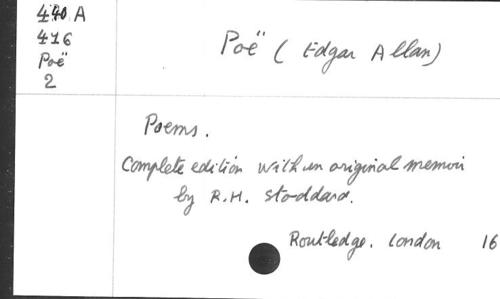 440 A
416
Poë
2
Poë ( Edgar Allan)
Poems.
Complete edition with an original memoir
by R.H. Stoddard.
Routledge. London 16